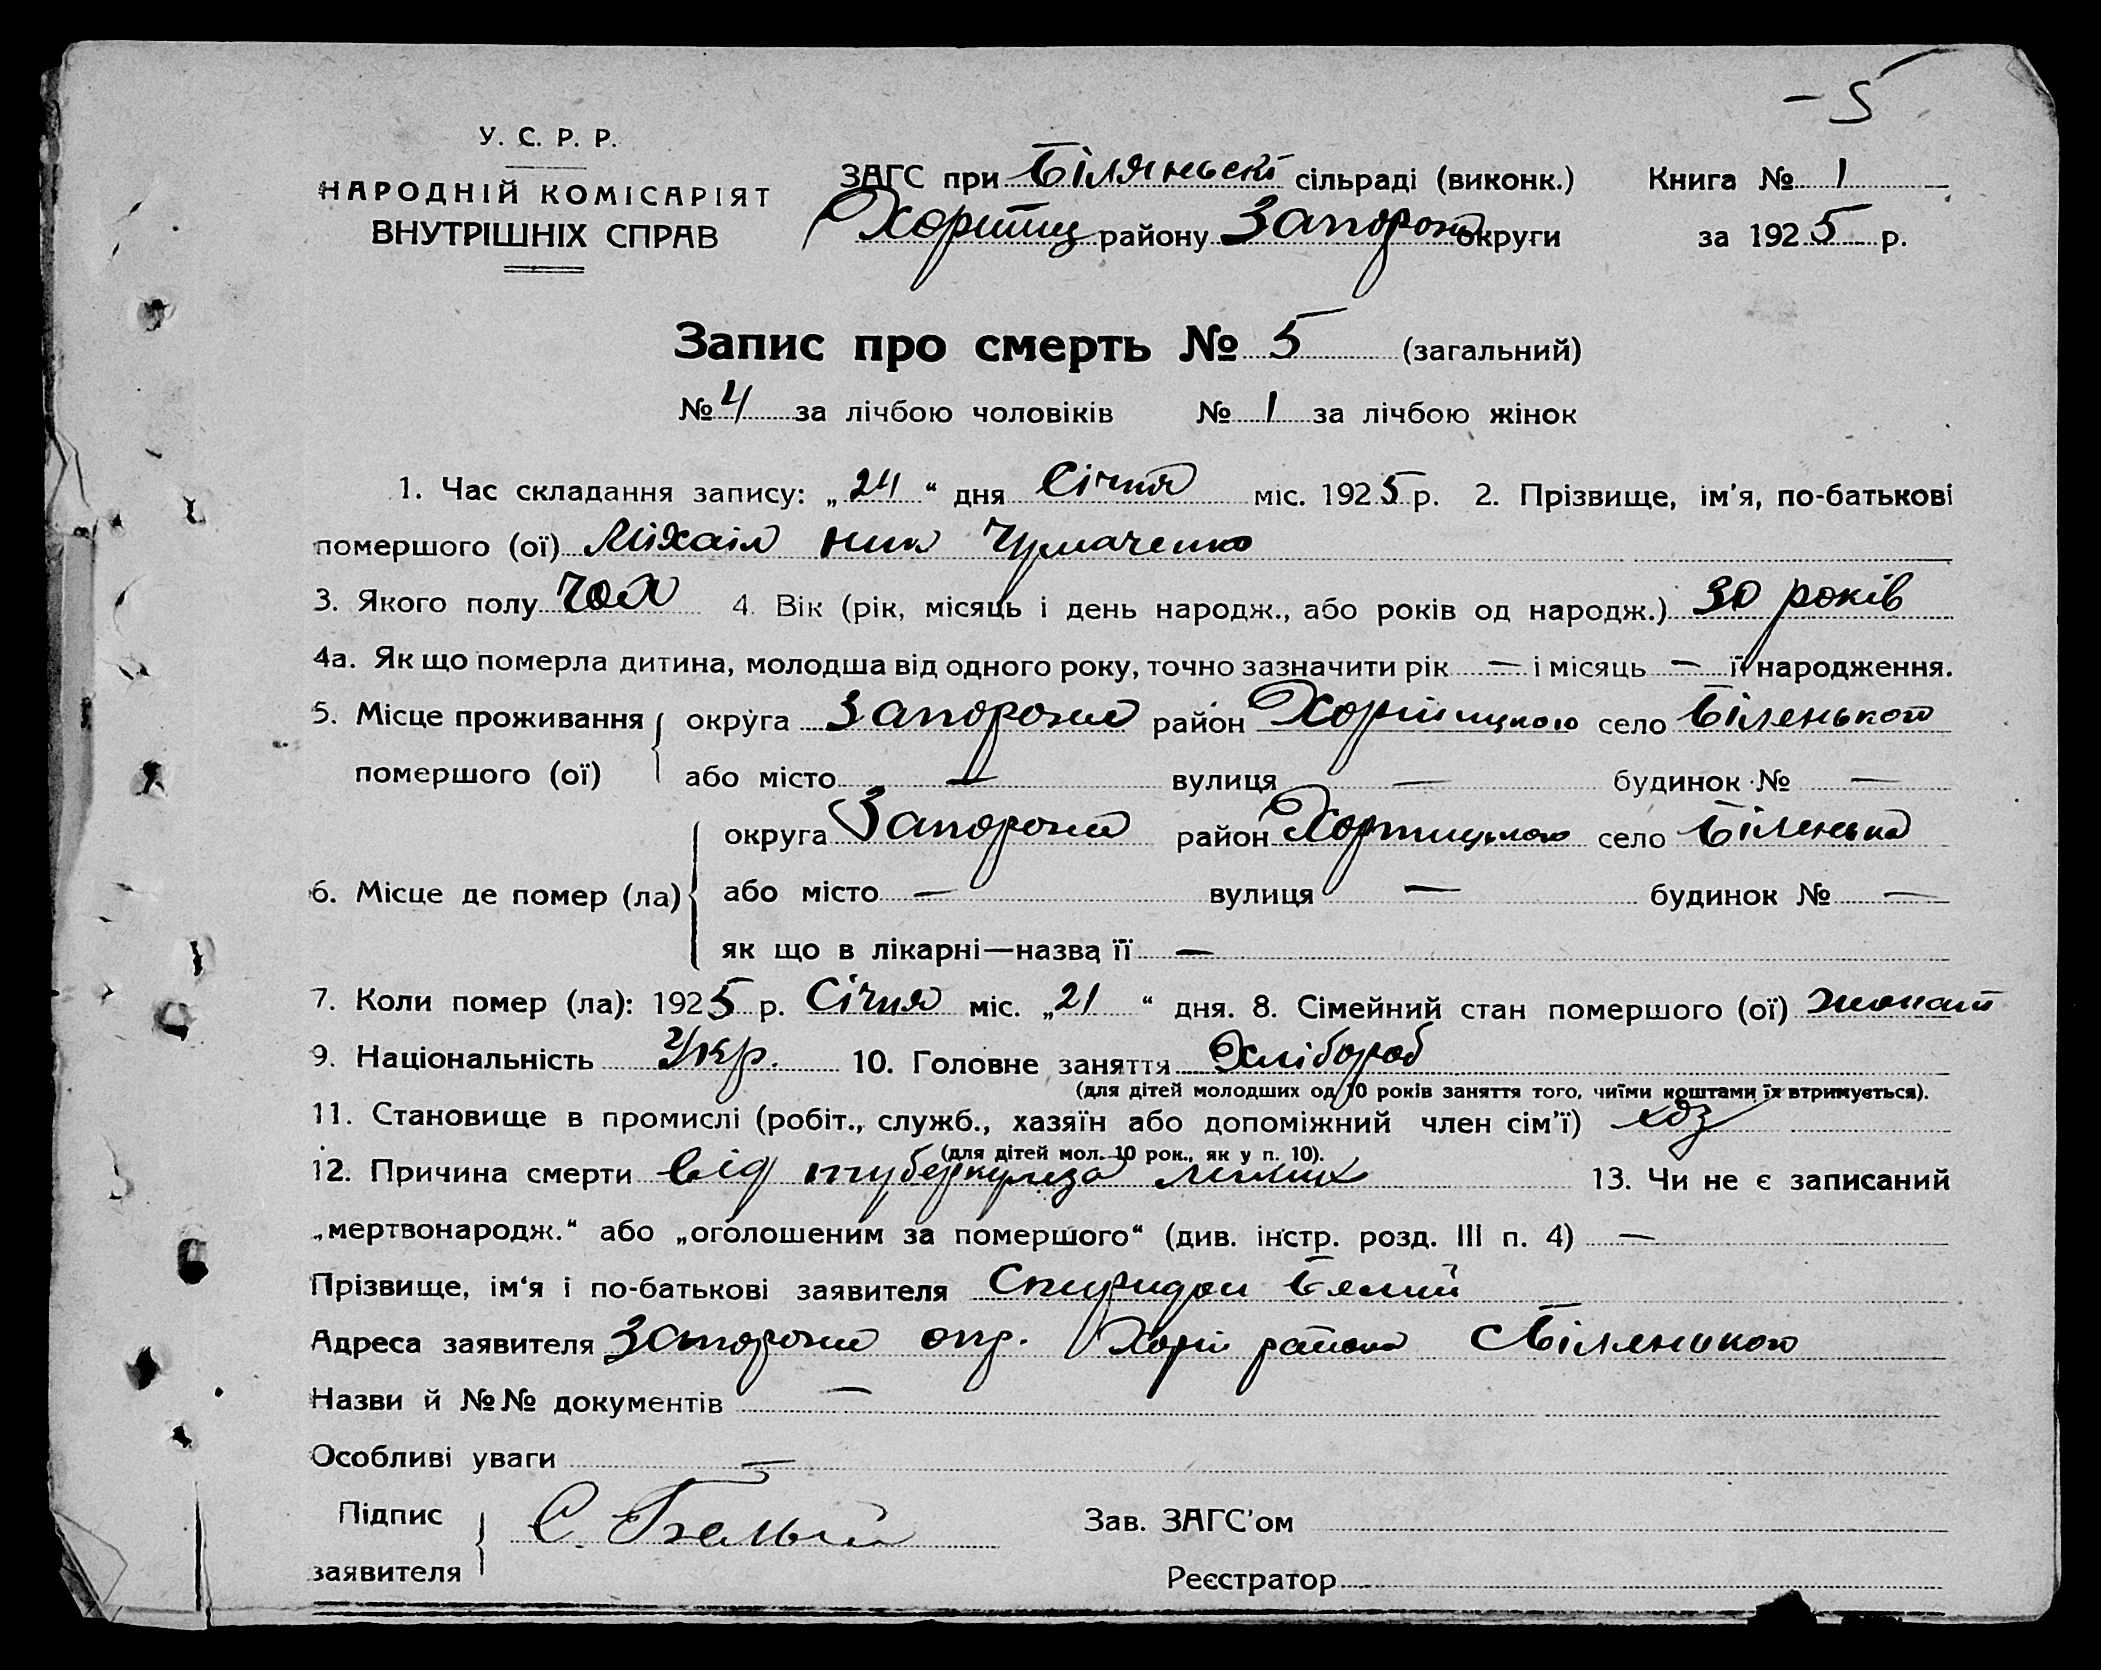 - 5
У. С. Р. Р.
НАРОДНІЙ КОМІСАРІЯТ
ВНУТРІШНІХ СПРАВ
ЗАГС при Біляньскі сільраді (виконк.) Книга № 1
Хортиц району Запорож округи за 1925 р.
Запис про смерть № 5 (загальний)
№ 4 за лічбою чоловіків № 1 за лічбою жінок
1. Час складання запису: „24“ дня Січня міс. 1925 р. 2. Прізвище, ім'я, по-батькові
помершого (ої) Міхаіл Ник Чумаченко
3. Якого полу чол 4. Вік (рік, місяць і день народж., або років од народж.) 30 років
4а. Як що померла дитина, молодша від одного року, точно зазначити рік — і місяць — її народження.
5. Місце проживання помершого (ої) округа Запорожя район Хортицького село Біленького
або місто — вулиця — будинок № —
6. Місце де помер (ла) округа Запорожя район Хортицького село Біленька
або місто — вулиця — будинок № —
як що в лікарні—назва її —
7. Коли помер (ла): 1925 р. Січня міс. „21“ дня. 8. Сімейний стан помершого (ої) жонат
9. Національність Укр. 10. Головне заняття Хлібороб
(для дітей молодших од 10 років заняття того, чиїми коштами їх втримується).
11. Становище в промислі (робіт., служб., хазяїн або допоміжний член сім'ї) хоз
(для дітей мол. 10 рок., як у п. 10).
12. Причина смерти від туберкулеза легких 13. Чи не є записаний
„мертвонародж.“ або „оголошеним за помершого“ (див. інстр. розд. III п. 4) —
Прізвище, ім'я і по-батькові заявителя Спиридон Белий
Адреса заявителя Запорожя окр. Хорт района с Біленького
Назви й №№ документів —
Особливі уваги —
Підпис заявителя С. Белый Зав. ЗАГС'ом
Реєстратор